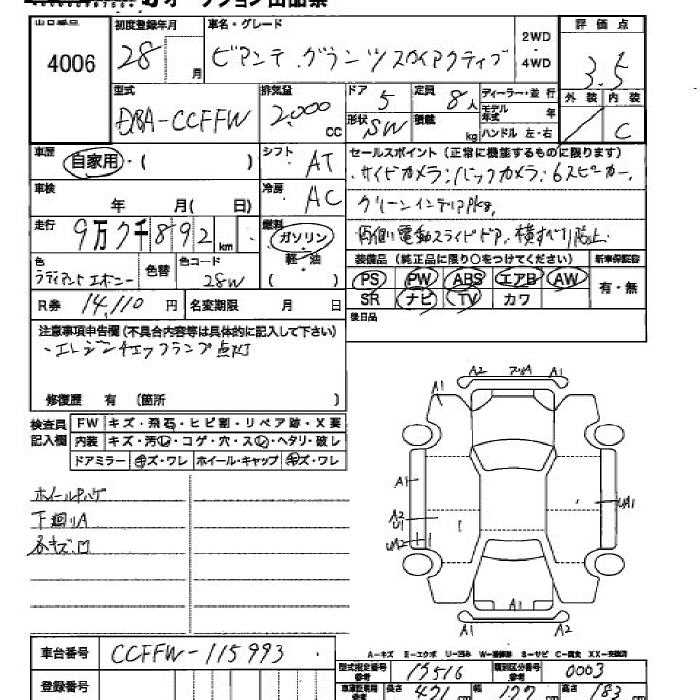 出品番号 初度登録年月 車名・グレード 評価点
4006 28 月 ビアンテ・グランツスカイアクティブ 2WD 4WD 3.5
型式 排気量 ドア 5 定員 8人 ディーラー・並行 外装 内装
DBA-CCFFW 2,000 CC 形状 SW 積載 kg モデル年式 年 ハンドル 左・右 C
車歴 自家用・( ) シフト AT セールスポイント (正常に機能するものに限ります)
サイドカメラ:バックカメラ:6スピーカー,
車検 年 月( 日) 冷房 AC グリーンインテリアPkg,
走行 9万7千892km 燃料 ガソリン・軽・油( ) 両側電動スライドドア,横すべり防止
色 色替 色コード 装備品 (純正品に限り○をつけてください) 新車保証書
ラディアントエボニー 28W PS PW ABS エアB AW 有・無
R券 14,110円 名変期限 月 日 SR ナビ TV カワ
後日品
注意事項申告欄(不具合内容等は具体的に記入して下さい)
・エンジンチェックランプ点灯
修復歴 有 (箇所 )
検査員記入欄 FW キズ・飛石・ヒビ割・リペア跡・X要
内装 キズ・汚し・コゲ・穴・スレ・ヘタリ・破レ
ドアミラー キズ・ワレ ホイール・キャップ キズ・ワレ
A2 A1
A1
A1
UA1
A2
U1
UA2
ホイール
下廻りA
小キズ.凹
A1
A1 A2
A-キズ E-エクボ U-凹み W-補修跡 S-サビ C-腐食 XX-交換済
車台番号 CCFFW-115993
型式指定番号 参考 17516 類別区分番号 参考 0003
登録番号 長さ 471 cm 幅 177 cm 高さ 183